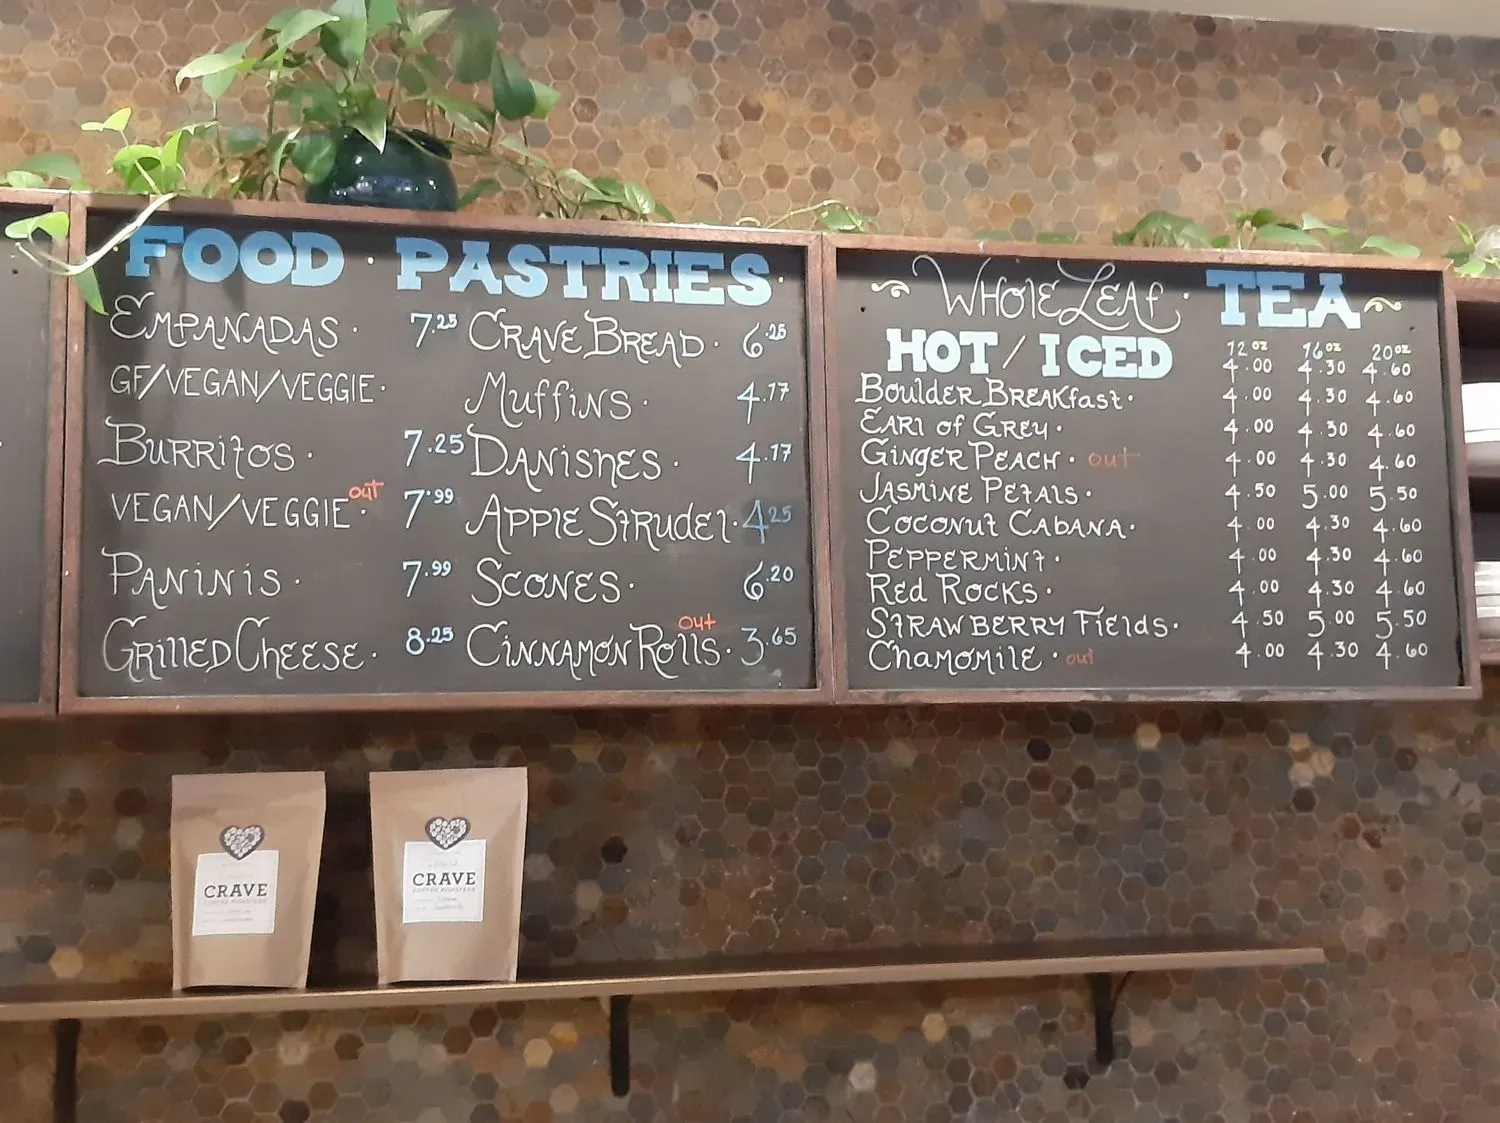 FOOD · PASTRIES ·
EMPANADAS · 7.25
GF/VEGAN/VEGGIE ·
BURRITOS · 7.25
VEGAN/VEGGIE · out 7.99
PANINIS · 7.99
GRILLED CHEESE · 8.25
CRAVE BREAD · 6.25
MUFFINS · 4.17
DANISHES · 4.17
APPLE STRUDEL · 4.25
SCONES · 6.20
CINNAMON ROLLS · out 3.65
WHOLE LEAF · TEA
HOT / ICED
12oz 16oz 20oz
4.00 4.30 4.60
BOULDER BREAKFAST · 4.00 4.30 4.60
EARL of GREY · 4.00 4.30 4.60
GINGER PEACH · out 4.00 4.30 4.60
JASMINE PETALS · 4.50 5.00 5.50
COCONUT CABANA · 4.00 4.30 4.60
PEPPERMINT · 4.00 4.30 4.60
RED ROCKS · 4.00 4.30 4.60
STRAWBERRY FIELDS · 4.50 5.00 5.50
CHAMOMILE · out 4.00 4.30 4.60
CRAVE
COFFEE ROASTERS
CRAVE
COFFEE ROASTERS